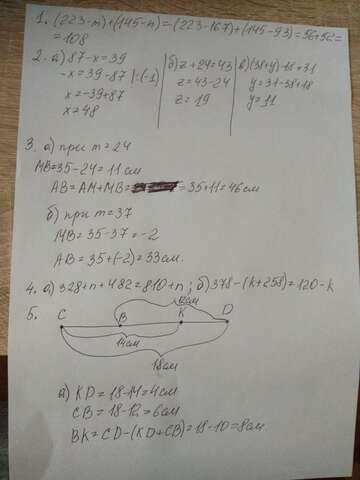 1. (223-m)+(145-n)=(223-167)+(145-93)=56+52=
=108
2. а) 87-x=39
-x=39-87 |:(-1)
x=-39+87
x=48
б) z+24=43
z=43-24
z=19
в) (38+y)-18=31
y=31-38+18
y=11
3. а) при m=24
MB=35-24=11см
AB=AM+MB= =35+11=46см
б) при m=37
MB=35-37=-2
AB=35+(-2)=33см.
4. а) 328+n+482=810+n; б) 378-(k+258)=120-k
5.
12см
C B K D
14см
18см
а) KD=18-14=4см
CB=18-12=6см
BK=CD-(KD+CB)=18-10=8см